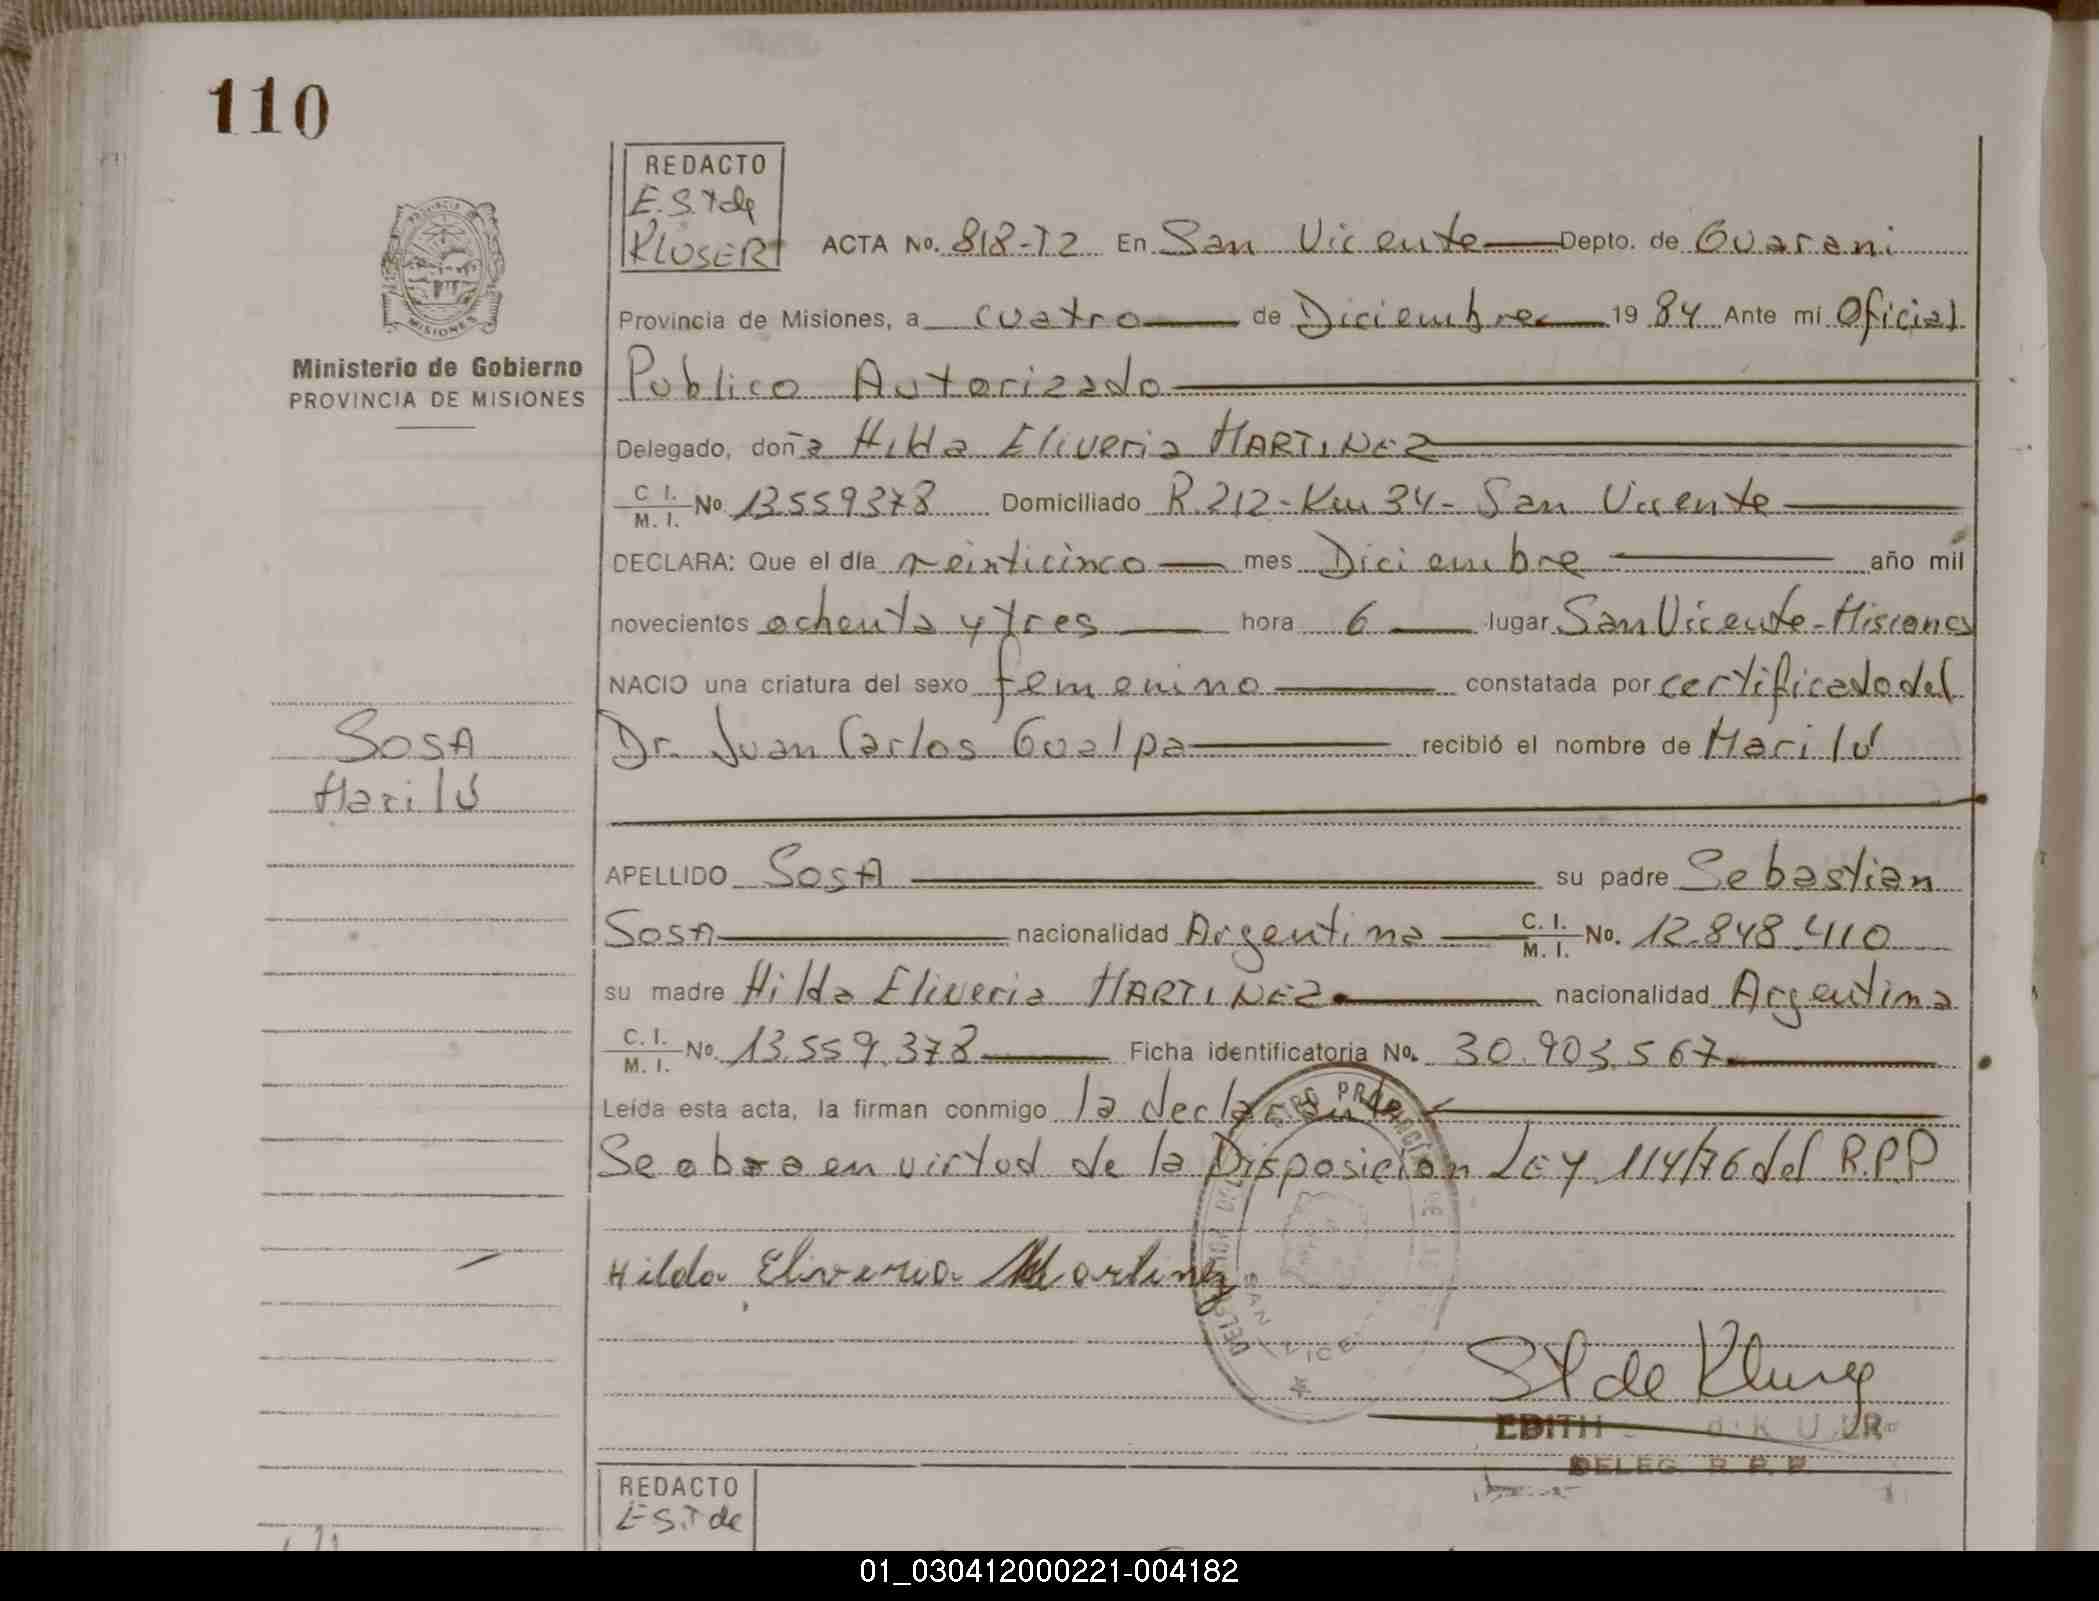 110
REDACTO
E.S.T de
KLUSER
ACTA No. 818-T2 En San Vicente Depto. de Guarani
Provincia de Misiones, a cuatro de Diciembre 19 84 Ante mí Oficial
Ministerio de Gobierno
PROVINCIA DE MISIONES
Publico Autorizado
Delegado, doña Hilda Eliveria MARTINEZ
C. I. M. I. No. 13559378 Domiciliado R.212-Km 34- San Vicente
DECLARA: Que el día veinticinco mes Diciembre año mil
novecientos ochenta y tres hora 6 lugar San Vicente-Misiones
NACIO una criatura del sexo femenino constatada por certificado del
SOSA
Marilú
Dr. Juan Carlos Gualpa recibió el nombre de Marilú
APELLIDO SOSA su padre Sebastian
SOSA nacionalidad Argentina C. I. M. I. No. 12.848.410
su madre Hilda Eliveria MARTINEZ nacionalidad Argentina
C. I. M. I. No. 13.559.378 Ficha identificatoria No. 30.903.567
Leída esta acta, la firman conmigo la declarante
Se obra en virtud de la Disposición LEY 114/76 del R.P.P
Hilda Eliveria Martinez
EDITH
DELEG. R. P. P.
REDACTO
E.S.T de
01_030412000221-004182